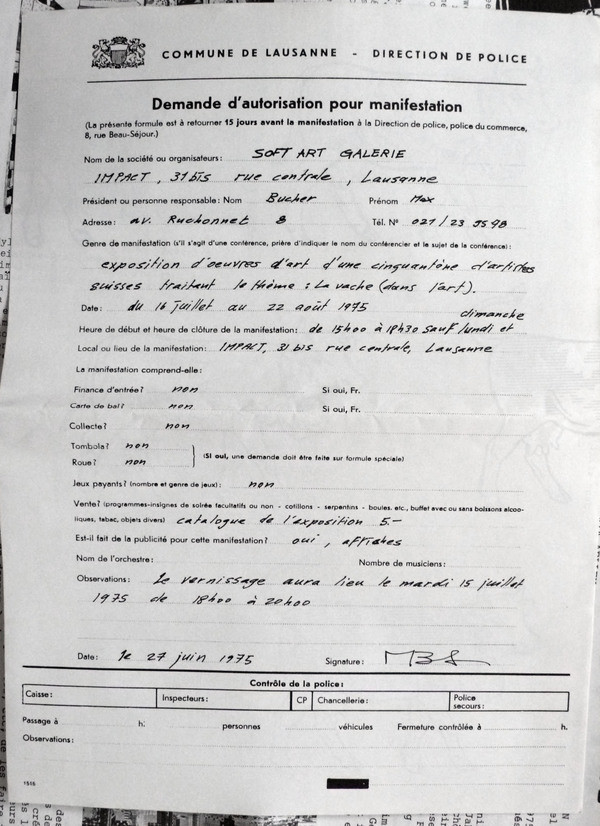 COMMUNE DE LAUSANNE - DIRECTION DE POLICE
Demande d'autorisation pour manifestation
(La présente formule est à retourner 15 jours avant la manifestation à la Direction de police, police du commerce,
8, rue Beau-Séjour.)
Nom de la société ou organisateurs: SOFT ART GALERIE
IMPACT, 31 bis rue centrale, Lausanne
Président ou personne responsable: Nom Bucher Prénom Max
Adresse: av. Ruchonnet 8 Tél. N° 021/23 55 98
Genre de manifestation (s'il s'agit d'une conférence, prière d'indiquer le nom du conférencier et le sujet de la conférence):
exposition d'oeuvres d'art d'une cinquantène d'artistes
suisses traitant le thème: La vache (dans l'art).
Date: du 16 juillet au 22 août 1975
dimanche
Heure de début et heure de clôture de la manifestation: de 15h00 à 19h30 sauf lundi et
Local ou lieu de la manifestation: IMPACT, 31 bis rue centrale, Lausanne
La manifestation comprend-elle:
Finance d'entrée? non Si oui, Fr.
Carte de bal? non Si oui, Fr.
Collecte? non
Tombola? non
Roue? non (Si oui, une demande doit être faite sur formule spéciale)
Jeux payants? (nombre et genre de jeux): non
Vente? (programmes-insignes de soirée facultatifs ou non - cotillons - serpentins - boules, etc., buffet avec ou sans boissons alcoo-
liques, tabac, objets divers) catalogue de l'exposition 5.-
Est-il fait de la publicité pour cette manifestation? oui, affiches
Nom de l'orchestre: Nombre de musiciens:
Observations: Le vernissage aura lieu le mardi 15 juillet
1975 de 18h00 à 20h00
Date: le 27 juin 1975 Signature:
Contrôle de la police:
Caisse: Inspecteurs: CP Chancellerie: Police secours:
Passage à h: personnes véhicules Fermeture contrôlée à h.
Observations: